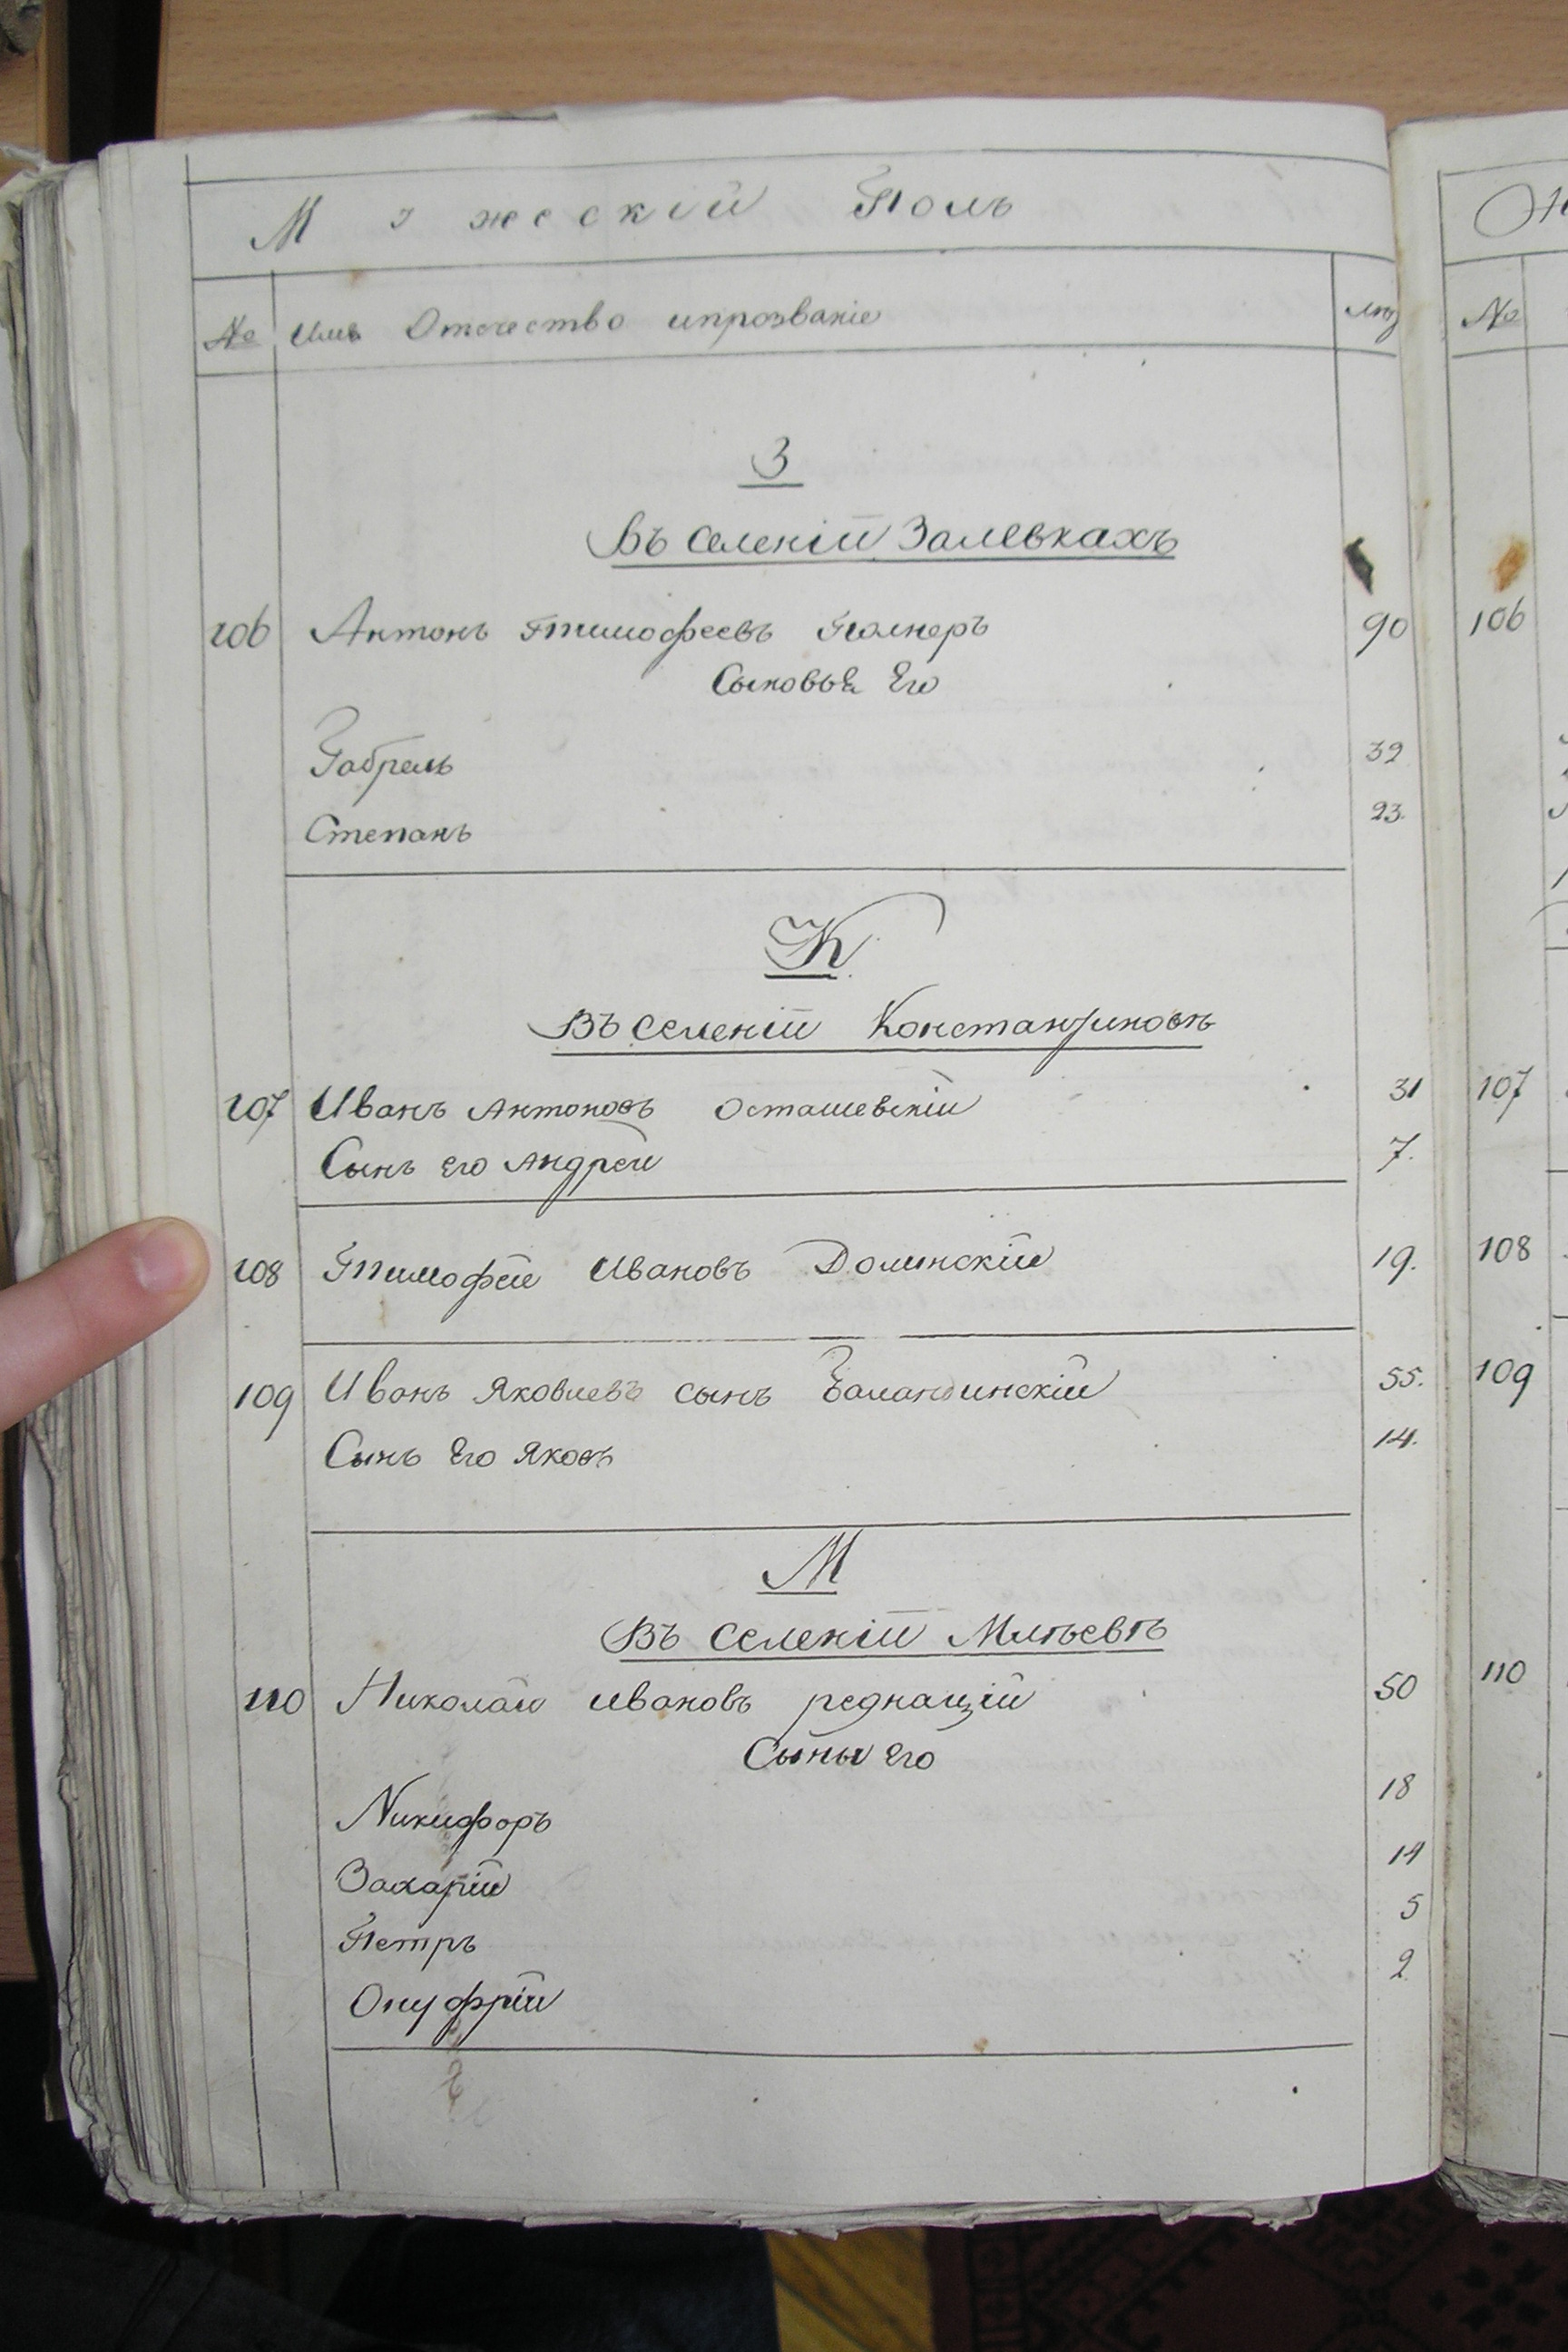 Мужескій Полъ
№ Имя Отчество ипрозваніе лѣт №
З
Въ селеніи Залевкахъ
106 Антонъ Тимофеевъ 90 106
Сыновья Его
Габрель 32
Степанъ 23.
К
Въ селеніи Константиновъ
107 Иванъ Антоновъ Осташевскій 31 107
Сынъ его Андрей 7.
108 Тимофей Ивановъ Долинскій 19. 108
109 Иванъ Яковлевъ сынъ 55. 109
Сынъ Его Яковъ 14.
М
Въ селеніи Млѣевѣ
110 Николай Ивановъ 50 110
Сыны Его
Никифоръ 18
Захарій 14
Петръ 5
Онуфрій 2